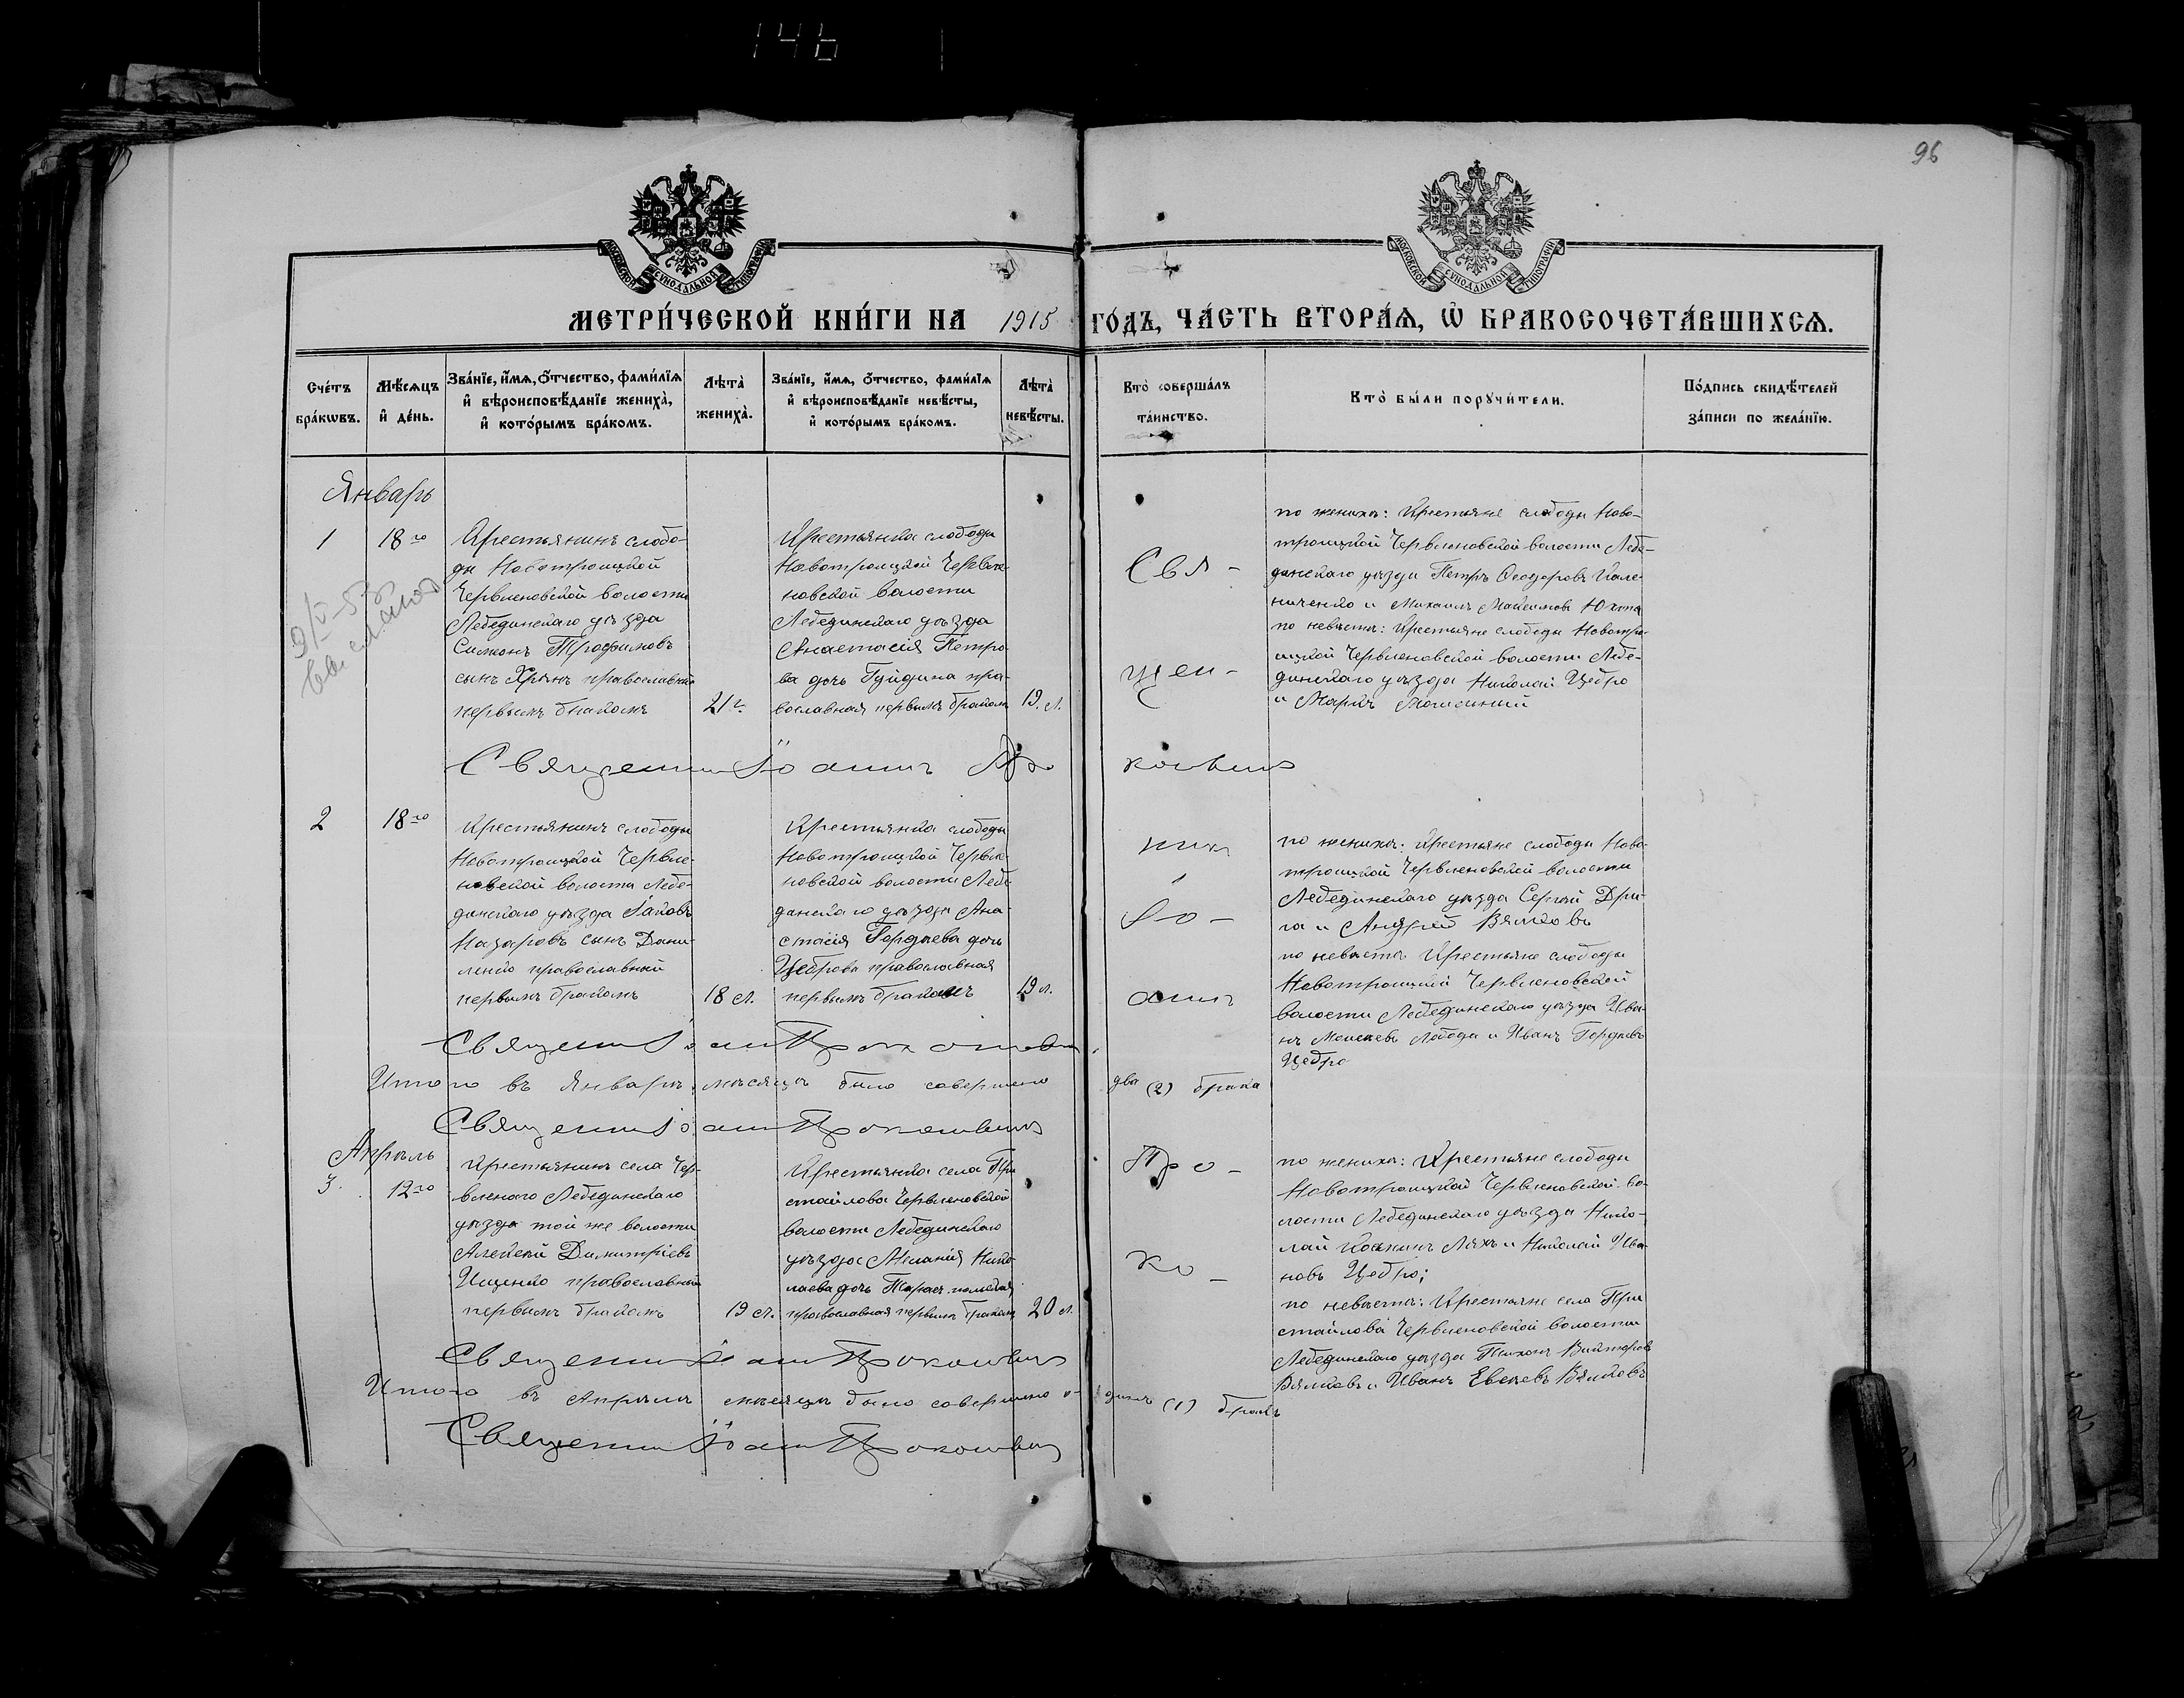 146
96
МОСКОВСКОЙ СѴНОДАЛЬНОЙ ТИПОГРАФІИ
МОСКОВСКОЙ СѴНОДАЛЬНОЙ ТИПОГРАФІИ
МЕТРИ́ЧЕСКОЙ КНИ́ГИ НА 1915 ГО́ДЪ, ЧА́СТЬ ВТОРА́Ѧ, Ѽ БРАКОСОЧЕТА́ВШИХСѦ.
Сче́тъ
бра́кѡвъ.
Мѣ́сѧцъ
и҆ де́нь.
Зва́нїе, и҆́мѧ, ѻ҆́тчество, фами́лїѧ
и҆ вѣроисповѣ́данїе жениха̀,
и҆ кото́рымъ бра́комъ.
Лѣта̀
жениха̀.
Зва́нїе, и҆́мѧ, ѻ҆́тчество, фами́лїѧ
и҆ вѣроисповѣ́данїе невѣ́сты,
и҆ кото́рымъ бра́комъ.
Лѣта̀
невѣ́сты.
Кто̀ соверша́лъ
та́инство.
Кто̀ бы́ли порꙋчи́тели.
По́дпись свидѣ́телей
за́писи по жела́нїю.
Январь
1
18го
Крестьянинъ слобо-
ды Новотроицкой
Червленовской волости
Лебединскаго уѣзда
Симеонъ Трофимовъ
сынъ православный
первымъ бракомъ
21
Крестьянка слободы
Новотроицкой Червле-
новской волости
Лебединскаго уѣзда
Анастасія Петро-
ва дочь Гуйдина пра-
вославная первымъ бракомъ
19 л.
Свя-
щен-
по женихѣ: Крестьяне слободы Ново-
троицкой Червленовской волости Лебе-
динскаго уѣзда Петръ Ѳеодоровъ
и Михаилъ Максимовъ
по невѣстѣ: Крестьяне слободы Новотро-
ицкой Червленовской волости Лебе-
динскаго уѣзда Николай Цебро
и
Священникъ Іоаннъ Прокоповичъ
2
18го
Крестьянинъ слободы
Новотроицкой Червле-
новской волости Лебе-
динскаго уѣзда Іаковъ
Назаровъ сынъ Дани-
ленко православный
первымъ бракомъ
18 л.
Крестьянка слободы
Новотроицкой Червле-
новской волости Лебе-
динскаго уѣзда Ана-
стасія Гордѣева дочь
Цеброва православная
первымъ бракомъ
19 л.
никъ
Іо-
аннъ
по женихѣ: Крестьяне слободы Ново-
троицкой Червленовской волости
Лебединскаго уѣзда Сергѣй Дри-
га и Андрей Вялковъ
по невѣстѣ Крестьяне слободы
Новотроицкой Червленовской
волости Лебединскаго уѣзда Ива-
нъ Лобода и Иванъ Гордѣевъ
Цебро
Священникъ Іоаннъ Прокоповичъ
Итого въ Январѣ мѣсяцѣ было совершено два (2) брака
Священникъ Іоаннъ Прокоповичъ
Апрѣль
3.
12го
Крестьянинъ села Чер-
вленаго Лебединскаго
уѣзда той же волости
Алексѣй Димитріевъ
Ищенко православный
первымъ бракомъ
19 л.
Крестьянка села При-
стайлова Червленовской
волости Лебединскаго
уѣзда Меланія Нико-
лаева дочь
православная первымъ бракомъ
20 л.
Про-
ко-
по женихѣ: Крестьяне слободы
Новотроицкой Червленовской во-
лости Лебединскаго уѣзда Нико-
лай Ляхъ и Николай Ива-
новъ Цебро;
по невѣстѣ: Крестьяне села При-
стайлова Червленовской волости
Лебединскаго уѣзда Тихонъ Викторовъ
Вялковъ и Иванъ Вялковъ
Священникъ Іоаннъ Прокоповичъ
Итого въ Апрѣлѣ мѣсяцѣ было совершено одинъ (1) бракъ
Священникъ Іоаннъ Прокоповичъ